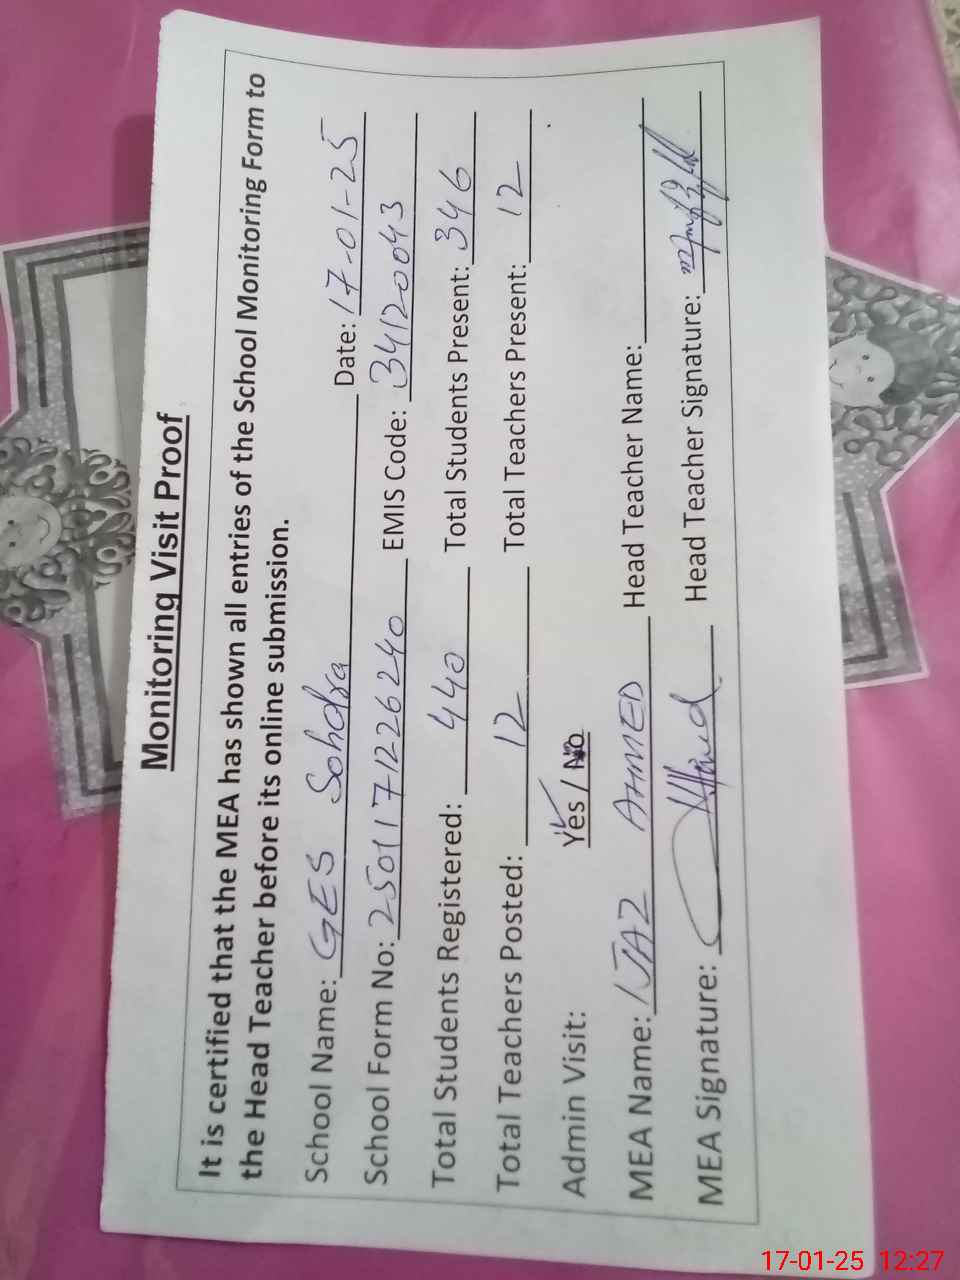 Monitoring Visit Proof
It is certified that the MEA has shown all entries of the School Monitoring Form to
the Head Teacher before its online submission.
School Name: GES Sohdra Date: 17-01-25
School Form No: 2501171226240 EMIS Code: 34120043
Total Students Registered: 440 Total Students Present: 346
Total Teachers Posted: 12 Total Teachers Present: 12
Admin Visit: Yes / No
MEA Name: IJAZ AHMED Head Teacher Name:
MEA Signature: Head Teacher Signature:
17-01-25 12:27